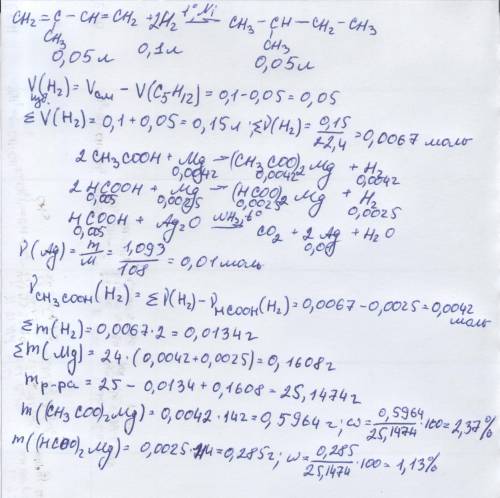 CH₂=C–CH=CH₂ +2H₂ t°, Ni CH₃–CH–CH₂–CH₃
CH₃ CH₃
0,05л 0,1л 0,05л
V(H₂)изб. = Vсм – V(C₅H₁₂) = 0,1–0,05 = 0,05
ΣV(H₂) = 0,1+0,05 = 0,15л · Σν(H₂) = 0,15/22,4 = 0,0067 моль
2CH₃COOH + Mg → (CH₃COO)₂Mg + H₂
0,0042 0,0042 0,0042
2HCOOH + Mg → (HCOO)₂Mg + H₂
0,005 0,0025 0,0025 0,0025
HCOOH + Ag₂O NH₃, t° CO₂ + 2Ag + H₂O
0,005 0,01
ν(Ag) = m/M = 1,093/108 = 0,01 моль
νCH₃COOH(H₂) = Σν(H₂) – νHCOOH(H₂) = 0,0067 – 0,0025 = 0,0042 моль
Σm(H₂) = 0,0067·2 = 0,0134г
Σm(Mg) = 24·(0,0042+0,0025) = 0,1608г
mр-ра = 25 – 0,0134 + 0,1608 = 25,1474г
m((CH₃COO)₂Mg) = 0,0042·142 = 0,5964г; ω = 0,5964/25,1474·100 = 2,37%
m((HCOO)₂Mg) = 0,0025·114 = 0,285г; ω = 0,285/25,1474·100 = 1,13%